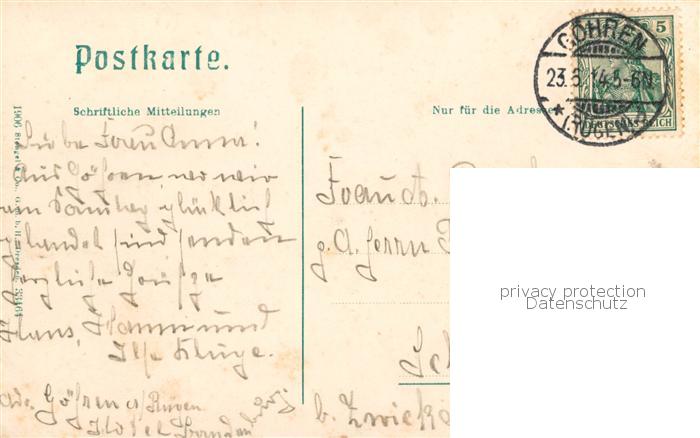 Postkarte.
Schriftliche Mitteilungen
Nur für die Adresse
GÖHREN
23.5.14.5-6N
* (RÜGEN)
5
DEUTSCHES REICH
1906 Stengel & Co., G.m.b.H., Dresden 33464
Liebe Frau Anna!
Aus Göhren, wo wir
am Samstag glücklich
gelandet sind senden
herzliche Grüsse
Hans, Hanni und
Ilse Kluge.
Adr. Göhren a/Rügen
Hotel Brandenburg
Frau
g. A. Herrn
b. Zwicka
privacy protection
Datenschutz